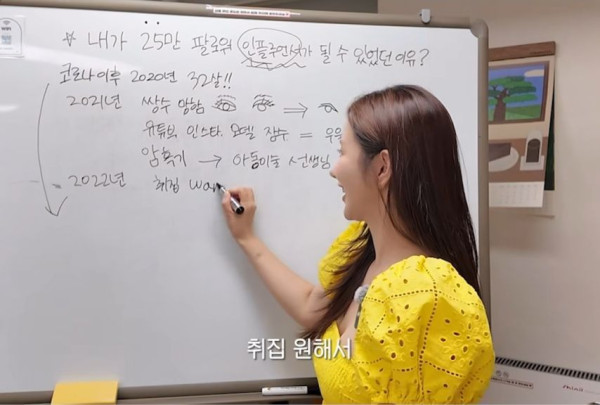 * 내가 25만 팔로워 인플루언서가 될 수 있었던 이유?
코로나 이후 2020년 32살!!
2021년 쌍수 망함 ⇒
유튜브 인스타 모델 잠수 = 우울
암흑기 → 아동미술 선생님
2022년 취집 wa
취집 원해서